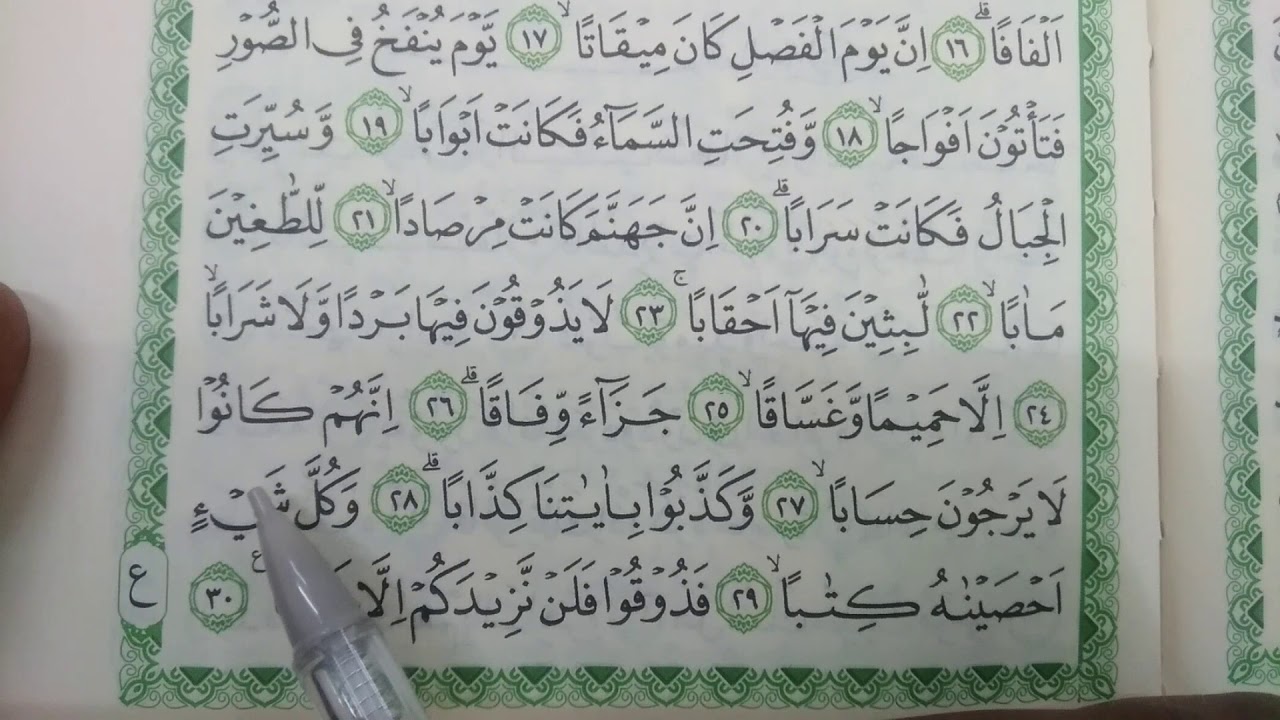 اَلۡفَافًا ۙ ١٦ اِنَّ يَوۡمَ الۡفَصۡلِ كَانَ مِيۡقَاتًا ۙ ١٧ يَّوۡمَ يُنۡفَخُ فِى الصُّوۡرِ
فَتَاۡتُوۡنَ اَفۡوَاجًا ۙ ١٨ وَّفُتِحَتِ السَّمَآءُ فَكَانَتۡ اَبۡوَابًا ۙ ١٩ وَّ سُيِّرَتِ
الۡجِبَالُ فَكَانَتۡ سَرَابًا ۗ ٢٠ اِنَّ جَهَنَّمَ كَانَتۡ مِرۡصَادًا ۙ ٢١ لِّلطّٰغِيۡنَ
مَاٰبًا ۙ ٢٢ لّٰبِثِيۡنَ فِيۡهَاۤ اَحۡقَابًا ۚ ٢٣ لَا يَذُوۡقُوۡنَ فِيۡهَا بَرۡدًا وَّلَا شَرَابًا ۙ
٢٤ اِلَّا حَمِيۡمًا وَّغَسَّاقًا ۙ ٢٥ جَزَآءً وِّفَاقًا ۗ ٢٦ اِنَّهُمۡ كَانُوۡا
لَا يَرۡجُوۡنَ حِسَابًا ۙ ٢٧ وَّكَذَّبُوۡا بِاٰيٰتِنَا كِذَّابًا ۗ ٢٨ وَكُلَّ شَىۡءٍ
اَحۡصَيۡنٰهُ كِتٰبًا ۙ ٢٩ فَذُوۡقُوۡا فَلَنۡ نَّزِيۡدَكُمۡ اِلَّا ٣٠
ع